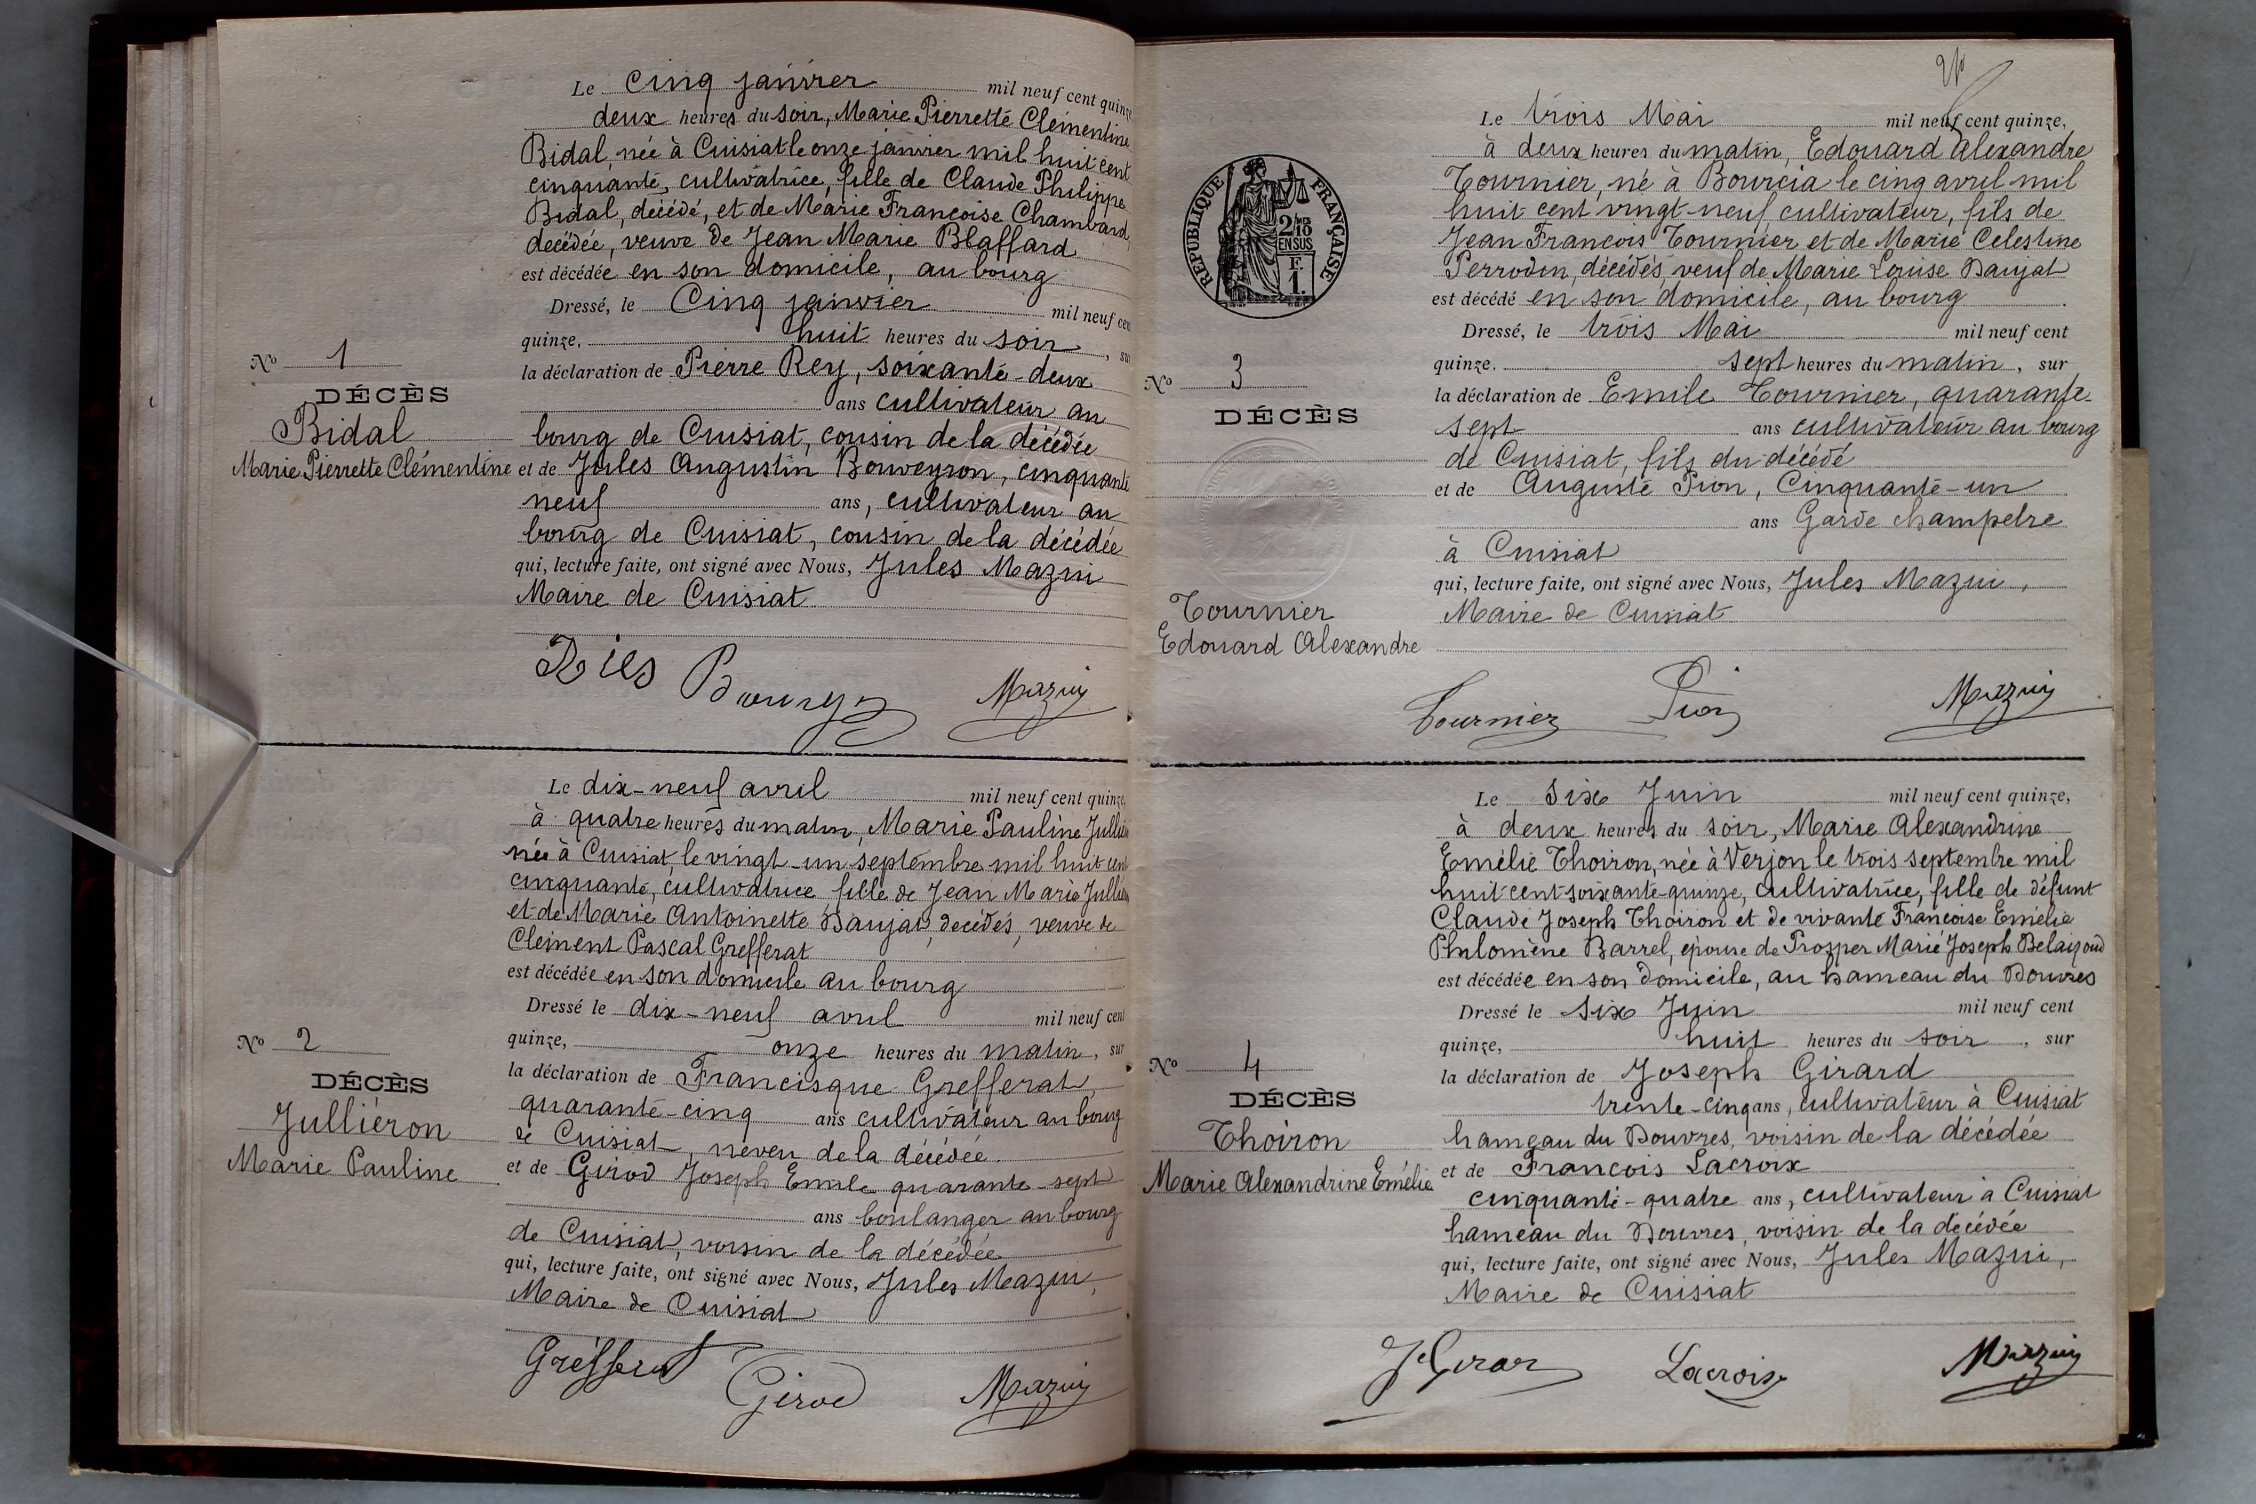 Le cinq janvier mil neuf cent quinze
deux heures du soir, Marie Pierrette Clémentine
Bidal, née à Cuisiat le onze janvier mil huit cent
cinquante, cultivatrice, fille de Claude Philippe
Bidal, décédé, et de Marie Françoise Chambard,
decédée, veuve de Jean Marie Blaffard
est décédée en son domicile, au bourg
Dressé, le Cinq janvier mil neuf cen
quinze, huit heures du soir, sur
la déclaration de Pierre Rey, soixante-deux
ans cultivateur au
bourg de Cuisiat, cousin de la décédée
et de Jules Augustin Bouveyron, cinquante
neuf ans, cultivateur au
bourg de Cuisiat, cousin de la décédée
qui, lecture faite, ont signé avec Nous, Jules Mazui
Maire de Cuisiat
No 1
DÉCÈS
Bidal
Marie Pierrette Clémentine
Mazuy
Le dix-neuf avril mil neuf cent quinze
à quatre heures du matin, Marie Pauline Jullié
née à Cuisiat, le vingt-un septembre mil huit cent
cinquante, cultivatrice fille de Jean Marie Jullié
et de Marie Antoinette Baujat, decédés, veuve de
Clément Pascal Grefferat
est décédée en son domicile au bourg
Dressé le dix-neuf avril mil neuf cent
quinze, onze heures du matin, sur
la déclaration de Francisque Grefferat,
quarante-cinq ans cultivateur au bourg
de Cuisiat, neveu de la décédée
et de Girod Joseph Emile quarante-sept
ans boulanger au bourg
de Cuisiat, voisin de la décédée
qui, lecture faite, ont signé avec Nous, Jules Mazui,
Maire de Cuisiat
No 2
DÉCÈS
Julliéron
Marie Pauline
Grefferat
Girod
Mazuy
RÉPUBLIQUE FRANÇAISE
2/10
EN SUS
F.
1.
Le trois Mai mil neuf cent quinze,
à deux heures du matin, Edouard Alexandre
Tournier, né à Bourcia le cinq avril mil
huit cent vingt-neuf cultivateur, fils de
Jean François Tournier et de Marie Celestine
Perrodin, décédés, veuf de Marie Louise Baujat
est décédé en son domicile, au bourg.
Dressé, le trois Mai mil neuf cent
quinze, sept heures du matin, sur
la déclaration de Emile Tournier, quarante-
sept ans cultivateur au bourg
de Cuisiat, fils du décédé
et de Auguste Pion, Cinquante-un
ans Garde champetre
à Cuisiat
qui, lecture faite, ont signé avec Nous, Jules Mazui,
Maire de Cuisiat
No 3
DÉCÈS
Tournier
Edouard Alexandre
Tournier
Pion
Mazuy
Le Six Juin mil neuf cent quinze,
à deux heures du soir, Marie Alexandrine
Emélie Thoiron, née à Verjon le trois septembre mil
huit cent soixante-quinze, cultivatrice, fille de défunt
Claude Joseph Thoiron et de vivante Françoise Emélie
Philomène Barrel, épouse de Prosper Marie Joseph
est décédée en son domicile, au hameau du Douvres
Dressé le six Juin mil neuf cent
quinze, huit heures du soir, sur
la déclaration de Joseph Girard
trente-cinq ans, cultivateur à Cuisiat
hameau du Douvres, voisin de la décédée
et de François Lacroix
cinquante-quatre ans, cultivateur à Cuisiat
hameau du Douvres, voisin de la décédée
qui, lecture faite, ont signé avec Nous, Jules Mazui,
Maire de Cuisiat
No 4
DÉCÈS
Thoiron
Marie Alexandrine Emélie
Lacroix
Mazuy